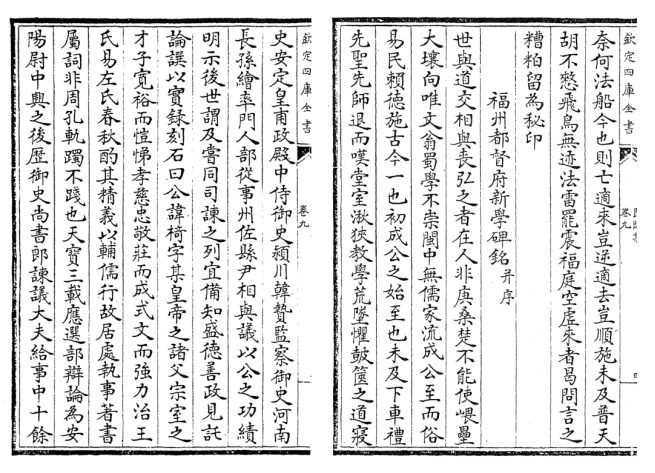 欽定四庫全書
卷九
奈何法船今也則亡適來豈逆適去豈順施未及普天
胡不憗飛鳥無迹法雷罷震福庭空虛來者曷問言之
糟粕留為秘印
福州都督府新學碑銘并序
世與道交相與喪弘之者在人非庚桑楚不能使嵔壘
大壤向唯文翁蜀學不崇閩中無儒家流成公至而俗
易民賴德施古今一也初成公之始至也未及下車禮
先聖先師退而嘆堂室湫狹教學荒墜懼鼓篋之道寢
欽定四庫全書
卷九
史安定皇甫政殿中侍御史潁川韓贄監察御史河南
長孫繪率門人部從事州佐縣尹相與議以公之功績
明示後世謂及嘗同司諫之列宜備知盛德善政見託
論譔以實錄刻石曰公諱椅字某皇帝之諸父宗室之
才子寛裕而愷悌孝慈忠敬莊而成式文而強力治王
氏易左氏春秋酌其精義以輔儒行故居處執事著書
屬詞非周孔軌躅不踐也天寶三載應選部辯論為安
陽尉中興之後歷御史尚書郎諫議大夫給事中十餘